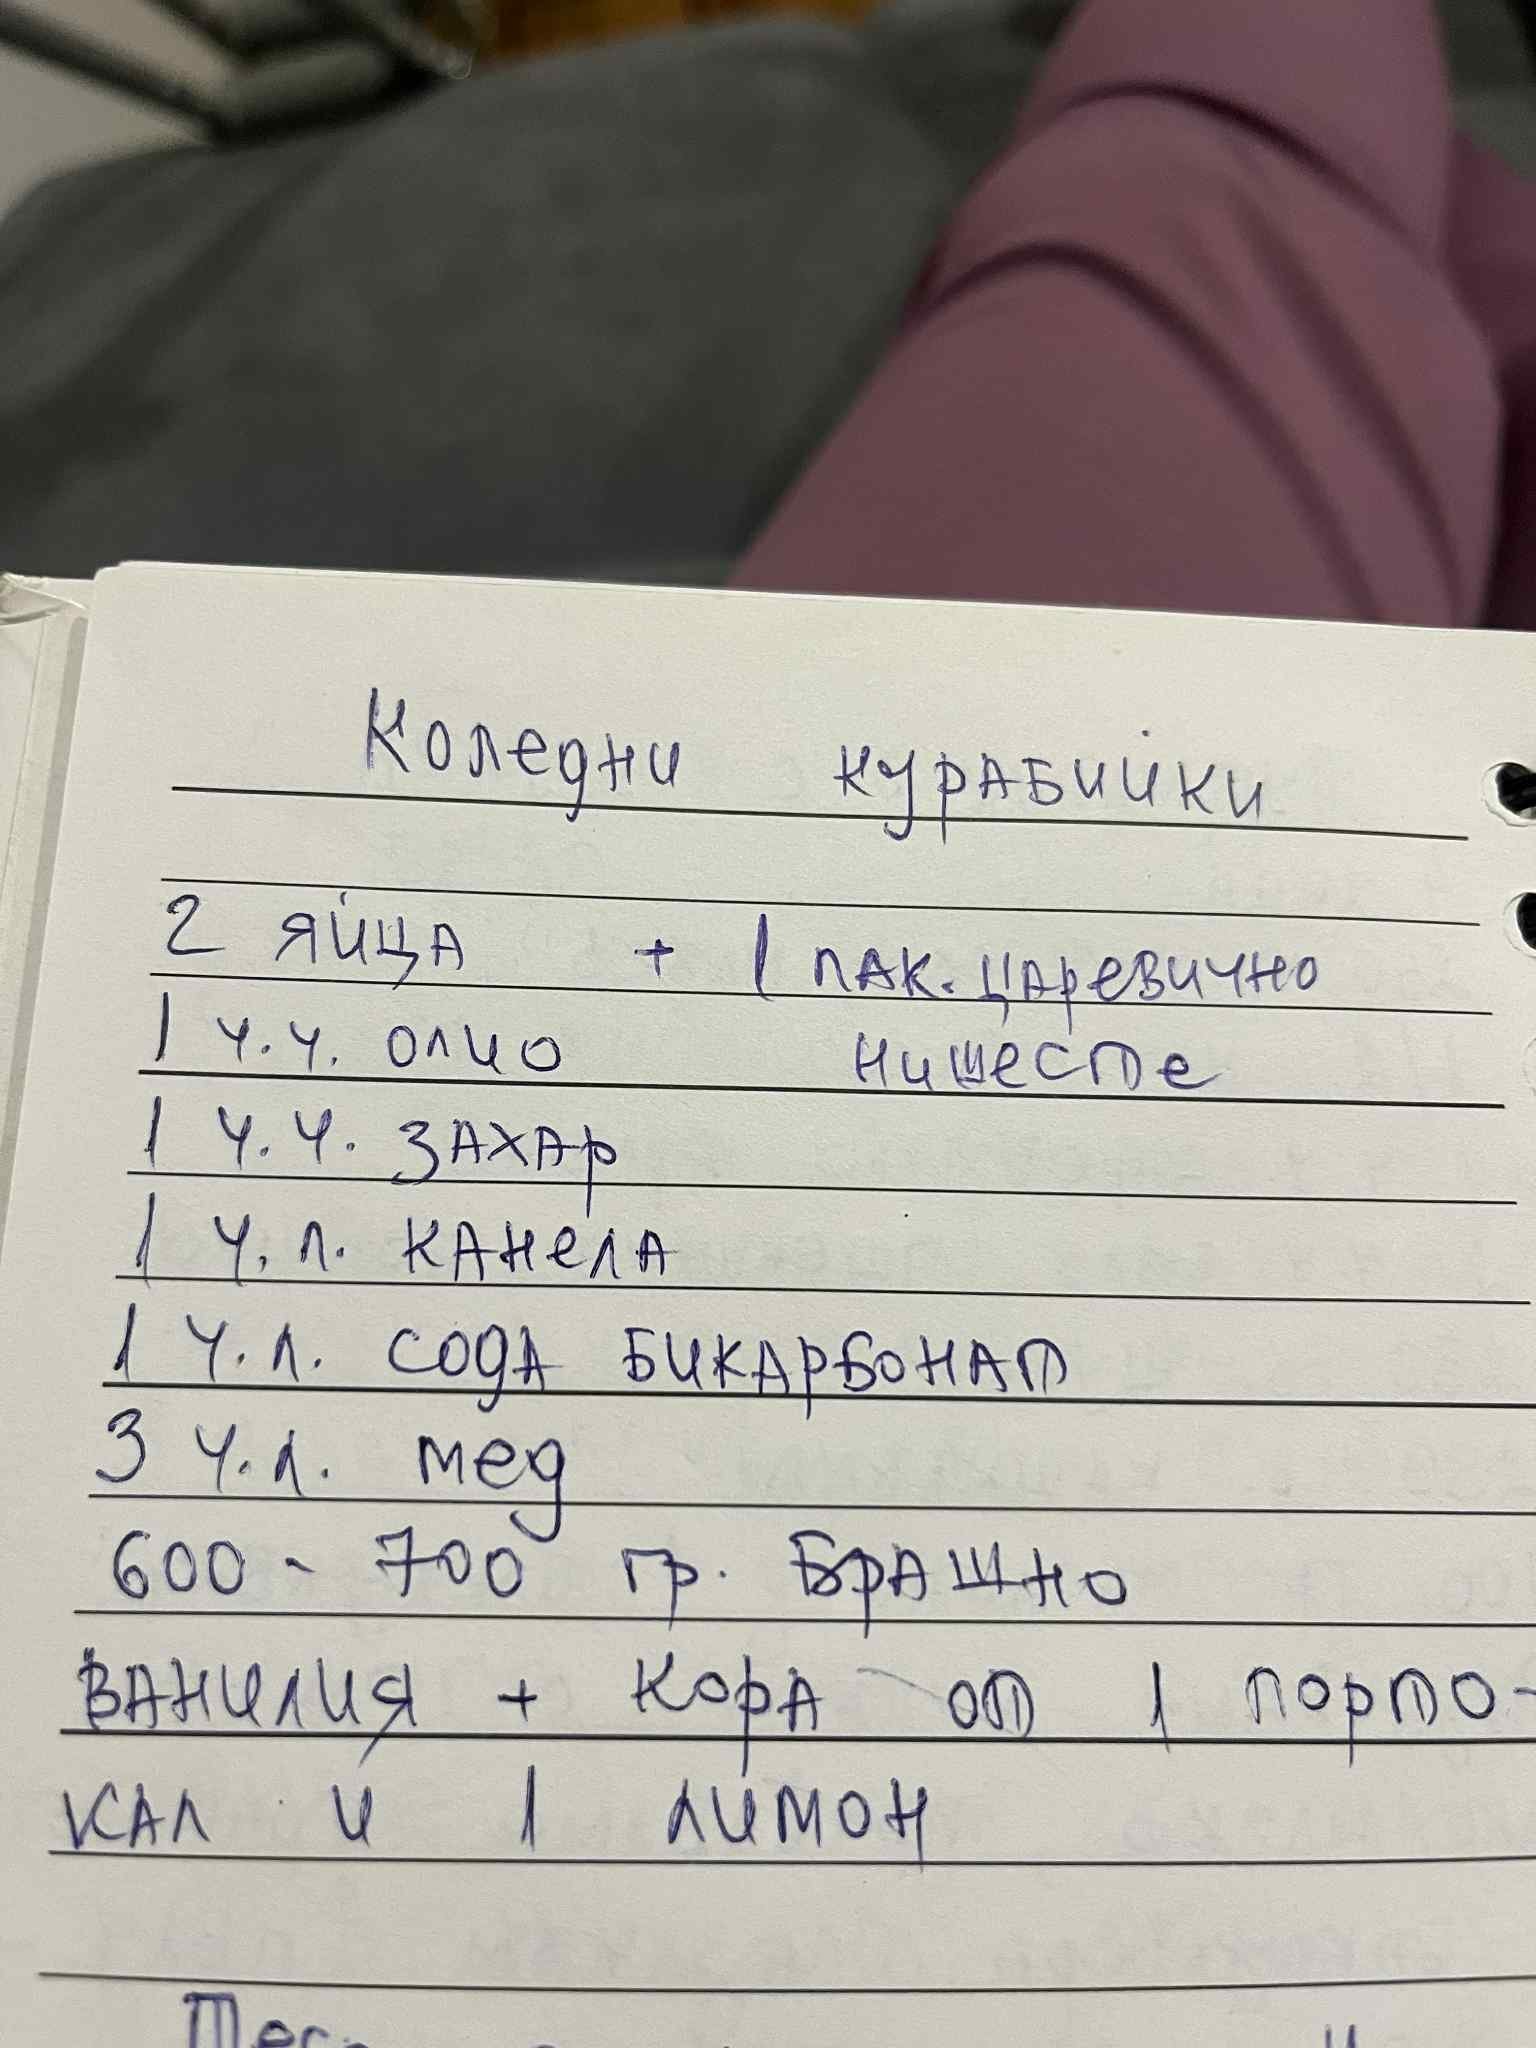 Коледни курабийки
2 яйца + 1 пак. царевично
1 ч.ч. олио нишесте
1 ч.ч. захар
1 ч.л. канела
1 ч.л. сода бикарбонат
3 ч.л. мед
600 - 700 гр. брашно
ванилия + кора от 1 порто-
кал и 1 лимон